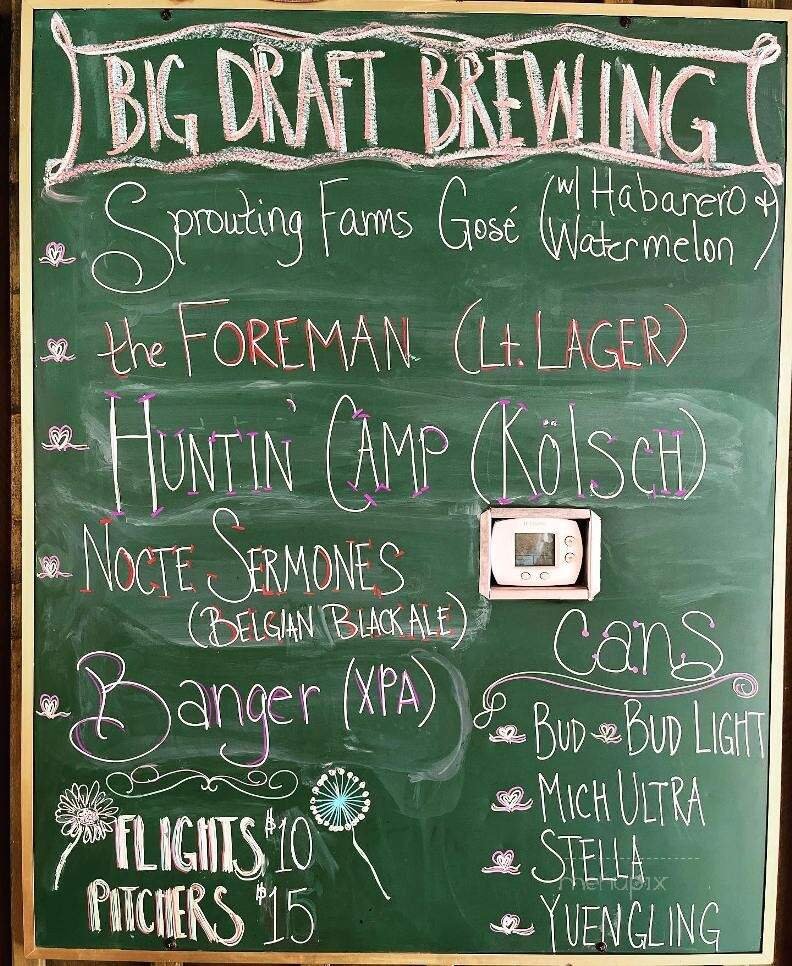 BIG DRAFT BREWING
Sprouting Farms Gosé (w/ Habanero &
Watermelon)
the FOREMAN (Lt. LAGER)
HUNTIN' CAMP (KÖLSCH)
NOCTE SERMONES
(BELGIAN BLACK ALE)
Banger (XPA)
FLIGHTS $10
PITCHERS $15
Cans
BUD BUD LIGHT
MICH ULTRA
STELLA
YUENGLING
menupix